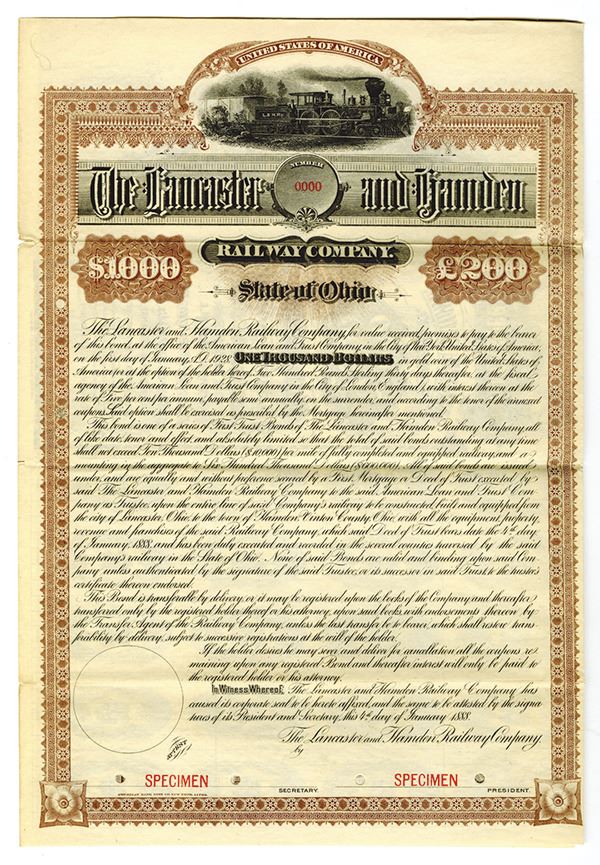 UNITED STATES OF AMERICA
NUMBER
0000
The Lancaster and Hamden
RAILWAY COMPANY.
$1000
£200
State of Ohio
The Lancaster and Hamden Railway Company, for value received, promises to pay to the bearer
of this bond, at the office of the American Loan and Trust Company in the City of New York, United States of America,
on the first day of January, A.D. 1928 ONE THOUSAND DOLLARS of gold coin of the United States of
America or at the option of the holder hereof Two Hundred Pounds Sterling, thirty days thereafter at the fiscal
agency of the American Loan and Trust Company in the City of London, England, with interest thereon at the
rate of Five per cent per annum, payable semi annually, on the surrender, and according to the tenor of the annexed
coupons. Said option shall be exercised as prescribed by the Mortgage hereinafter mentioned.
This bond is one of a series of First Trust Bonds of The Lancaster and Hamden Railway Company, all
of like date, tenor and effect, and absolutely limited so that the total of said bonds outstanding at any time
shall not exceed Ten Thousand Dollars ($10,000) per mile of fully completed and equipped railway, and a-
mounting in the aggregate to Six Hundred Thousand Dollars ($600,000). All of said bonds are issued
under, and are equally and without preference secured by a First Mortgage or Deed of Trust executed by
said The Lancaster and Hamden Railway Company to the said American Loan and Trust Com-
pany as Trustee, upon the entire line of said Company's railway to be constructed, built and equipped from
the city of Lancaster, Ohio, to the town of Hamden, Vinton County, Ohio, with all the equipment, property,
revenue and franchises of the said Railway Company, which said Deed of Trust bears date the 4th day
of January, 1888, and has been duly executed and recorded in the several counties traversed by the said
Company's railway in the State of Ohio. None of said Bonds are valid and binding upon said Com-
pany unless authenticated by the signature of the said Trustee, or its successor in said Trust, to the trustee's
certificate thereon endorsed.
This Bond is transferable by delivery, or it may be registered upon the books of the Company, and thereafter
transferred only by the registered holder thereof or his attorney, upon said books, with endorsements thereon by
the Transfer Agent of the Railway Company, unless the last transfer be to bearer, which shall restore trans-
ferability by delivery, subject to successive registrations at the will of the holder.
If the holder desires he may sever and deliver for cancellation all the coupons re-
maining upon any registered Bond and thereafter interest will only be paid to
the registered holder or his attorney.
In Witness Whereof, The Lancaster and Hamden Railway Company has
caused its corporate seal to be hereto affixed, and the same to be attested by the signa-
tures of its President and Secretary, this 4th day of January 1888.
The Lancaster and Hamden Railway Company,
by
ATTEST
SPECIMEN
SPECIMEN
SECRETARY.
PRESIDENT.